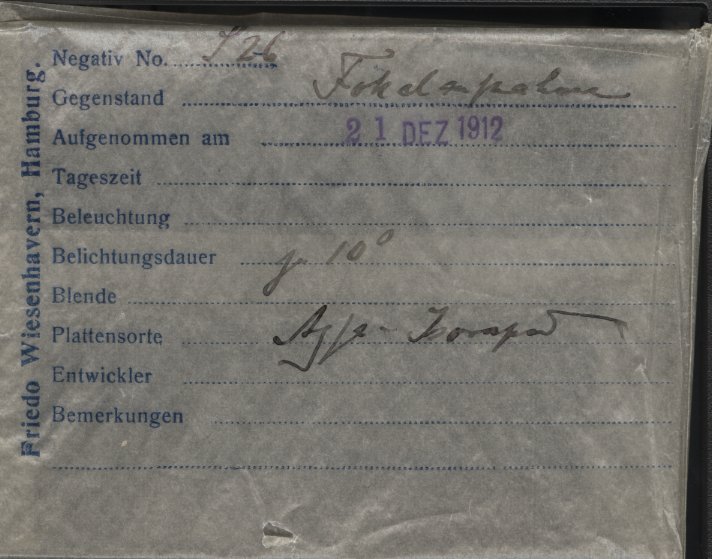 Friedo Wiesenhavern, Hamburg.
Negativ No. 326
Gegenstand
Aufgenommen am 21 DEZ 1912
Tageszeit
Beleuchtung
Belichtungsdauer 10
Blende
Plattensorte Agfa-
Entwickler
Bemerkungen